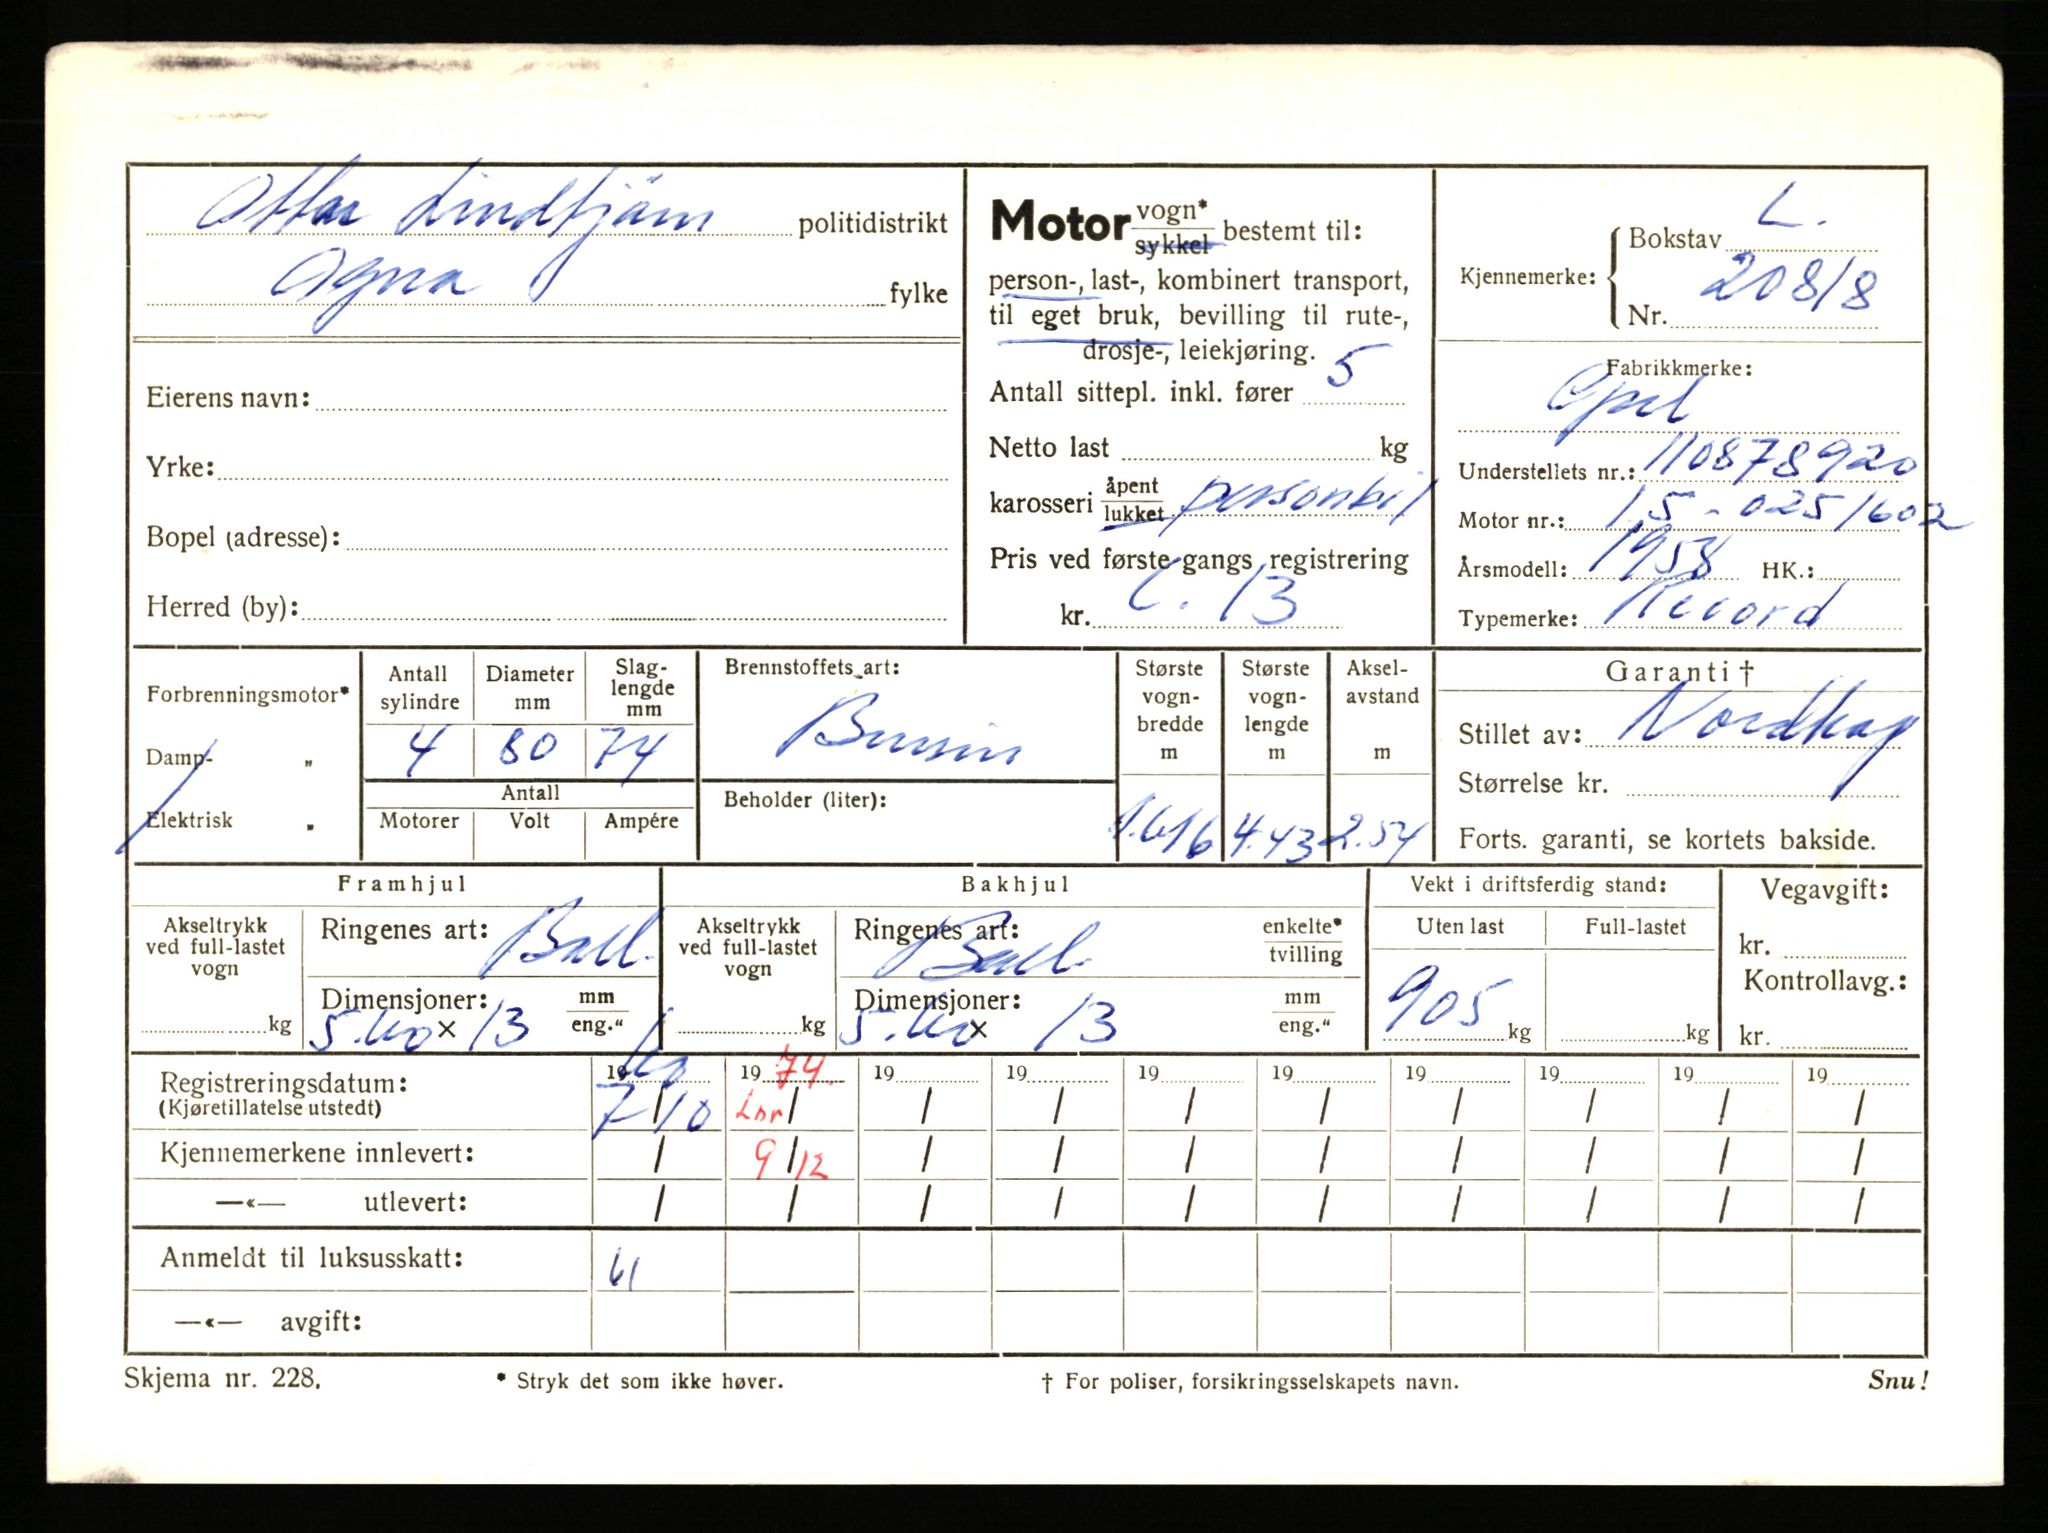 Ottar Lindtjörn politidistrikt
Ogna fylke
Eierens navn:
Yrke:
Bopel (adresse):
Herred (by):
Motor vogn* sykkel bestemt til:
person-, last-, kombinert transport,
til eget bruk, bevilling til rute-,
drosje-, leiekjøring.
Antall sittepl. inkl. fører 5
Netto last kg
karosseri åpent lukket personbil
Pris ved første gangs registrering
kr. C. 13
Kjennemerke: Bokstav L.
Nr. 20818
Fabrikkmerke:
Opel
Understellets nr.: 110878920
Motor nr.: 1,5 - 0251602
Årsmodell: 1958 HK.:
Typemerke: Record
Forbrenningsmotor*
Damp- "
Elektrisk "
Antall sylindre Diameter mm Slag-lengde mm
4 80 74
Antall
Motorer Volt Ampére
Brennstoffets art:
Bensin
Beholder (liter):
Største vogn-bredde m Største vogn-lengde m Aksel-avstand m
1.616 4.43 2.54
Garanti †
Stillet av: Nordkap
Størrelse kr.
Forts. garanti, se kortets bakside.
Framhjul
Akseltrykk ved full-lastet vogn
kg
Ringenes art: Ball.
Dimensjoner: mm eng."
5.60 x 13
Bakhjul
Akseltrykk ved full-lastet vogn
kg
Ringenes art: Ball. enkelte* tvilling
Dimensjoner: mm eng."
5.60 x 13
Vekt i driftsferdig stand:
Uten last Full-lastet
905 kg kg
Vegavgift:
kr.
Kontrollavg.:
kr.
Registreringsdatum: 1960 1974. 19 19 19 19 19 19 19 19
(Kjøretillatelse utstedt) 7/10 Lnr / / / / / / / / /
Kjennemerkene innlevert: / 9/12 / / / / / / / /
—«— utlevert: / / / / / / / / / /
Anmeldt til luksusskatt: 61
—«— avgift:
Skjema nr. 228. * Stryk det som ikke høver. † For poliser, forsikringsselskapets navn. Snu!